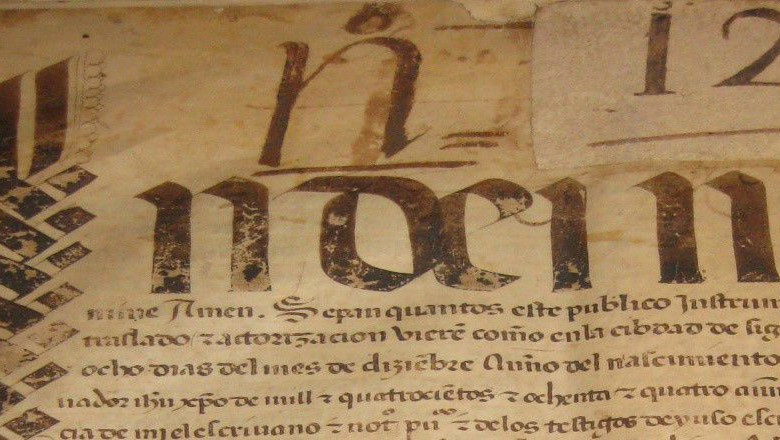 ñ = 12
n dei n
mine Amen. Sepan quantos este publico Instrum
traslado τ actorizacion vierẽ como en la cibdad de sig
ocho dias del mes de diziẽbre Año del nascimiento
uador ihũ xp̃o de mill τ quatrociẽtos τ ochenta τ quatro
cia de mi el escriuano τ not° pu τ delos testigos deyuso esc